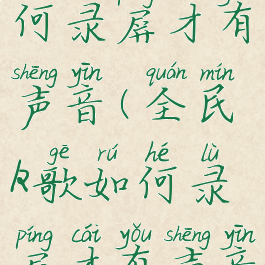 何录屏才有
shēng yīn quán mín
声音(全民
gē rú hé lù
K歌如何录
píng cái yǒu shēng yīn
屏才有声音